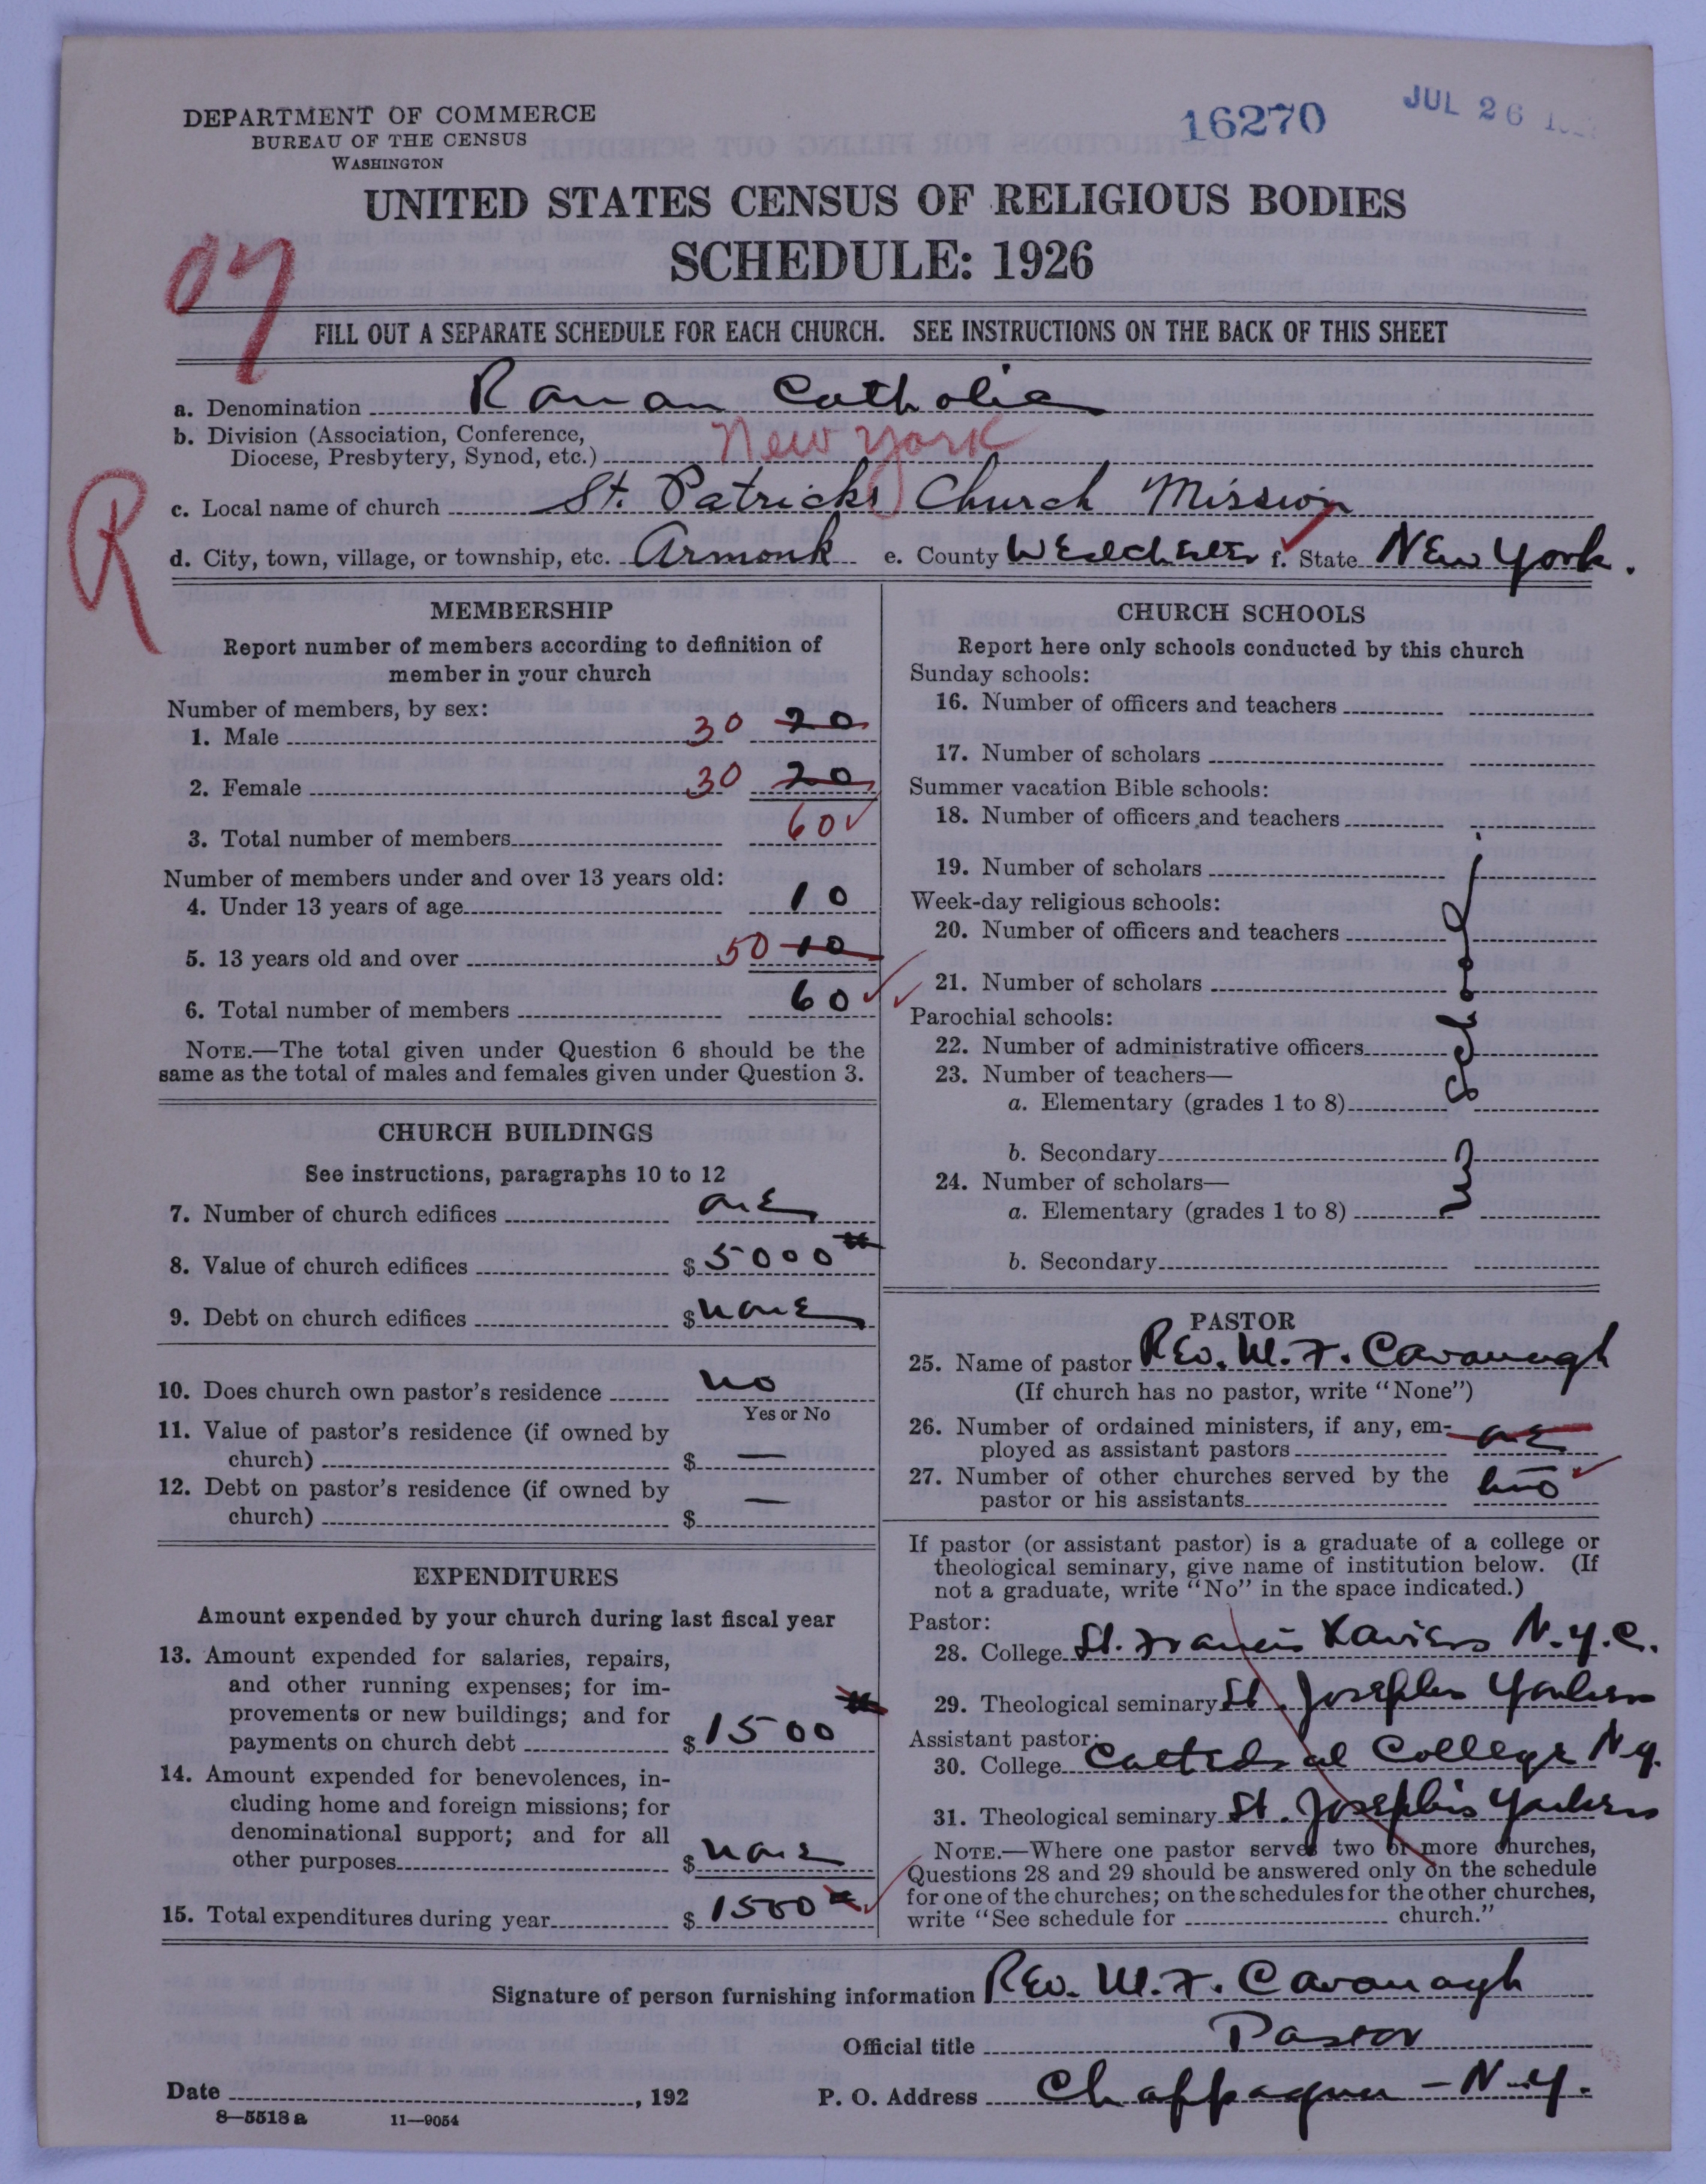 DEPARTMENT OF COMMERCE
BUREAU OF THE CENSUS
WASHINGTON
16270
JUL 26
UNITED STATES CENSUS OF RELIGIOUS BODIES
SCHEDULE: 1926
07
FILL OUT A SEPARATE SCHEDULE FOR EACH CHURCH. SEE INSTRUCTIONS ON THE BACK OF THIS SHEET
a. Denomination Roman Catholic
b. Division (Association, Conference,
Diocese, Presbytery, Synod, etc.) New York
R
c. Local name of church St. Patricks Church Mission
d. City, town, village, or township, etc. Armonk e. County Westchester f. State New York.
MEMBERSHIP
Report number of members according to definition of
member in your church
Number of members, by sex:
1. Male 30 20
2. Female 30 20
3. Total number of members 60
Number of members under and over 13 years old:
4. Under 13 years of age 10
5. 13 years old and over 50 10
6. Total number of members 60
NOTE.—The total given under Question 6 should be the
same as the total of males and females given under Question 3.
CHURCH BUILDINGS
See instructions, paragraphs 10 to 12
7. Number of church edifices one
8. Value of church edifices $ 5000
9. Debt on church edifices $ none
10. Does church own pastor's residence no
Yes or No
11. Value of pastor's residence (if owned by
church) $ —
12. Debt on pastor's residence (if owned by
church) $ —
EXPENDITURES
Amount expended by your church during last fiscal year
13. Amount expended for salaries, repairs,
and other running expenses; for im-
provements or new buildings; and for
payments on church debt $ 1500
14. Amount expended for benevolences, in-
cluding home and foreign missions; for
denominational support; and for all
other purposes $ none
15. Total expenditures during year $ 1500
CHURCH SCHOOLS
Report here only schools conducted by this church
Sunday schools:
16. Number of officers and teachers
17. Number of scholars
Summer vacation Bible schools:
18. Number of officers and teachers
19. Number of scholars
Week-day religious schools:
20. Number of officers and teachers
21. Number of scholars
Parochial schools:
22. Number of administrative officers
23. Number of teachers—
a. Elementary (grades 1 to 8)
b. Secondary
24. Number of scholars—
a. Elementary (grades 1 to 8)
b. Secondary
School
PASTOR
25. Name of pastor Rev. W. F. Cavanagh
(If church has no pastor, write "None")
26. Number of ordained ministers, if any, em-
ployed as assistant pastors one
27. Number of other churches served by the
pastor or his assistants two
If pastor (or assistant pastor) is a graduate of a college or
theological seminary, give name of institution below. (If
not a graduate, write "No" in the space indicated.)
Pastor:
28. College St. Francis Xaviers N.Y.C.
29. Theological seminary St. Josephs Yonkers
Assistant pastor:
30. College Cathedral College N.Y.
31. Theological seminary St. Josephs Yonkers
NOTE.—Where one pastor serves two or more churches,
Questions 28 and 29 should be answered only on the schedule
for one of the churches; on the schedules for the other churches,
write "See schedule for church."
Signature of person furnishing information Rev. W. F. Cavanagh
Official title Pastor
Date , 192 P. O. Address Chappaqua - N.Y.
8—5518 a 11—9054